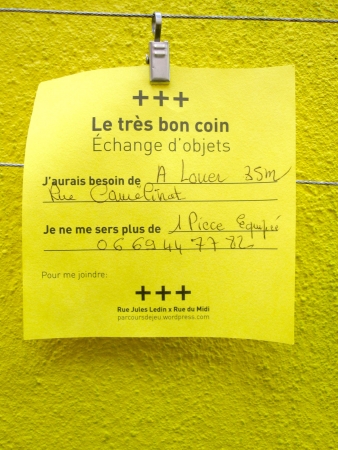 +++
Le très bon coin
Échange d'objets
J'aurais besoin de A Louer 35m
Rue Camelinat
Je ne me sers plus de 1 Piece Equipé
06 69 44 77 82
Pour me joindre:
+++
Rue Jules Ledin x Rue du Midi
parcoursdejeu.wordpress.com